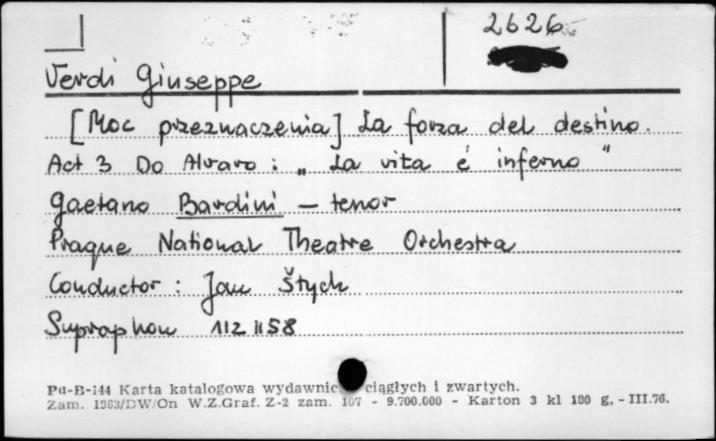 2626
Verdi Giuseppe
[Moc przeznaczenia] La forza del destino.
Act 3 Do Alvaro: „La vita é inferno"
Gaetano Bardini – tenor
Prague National Theatre Orchestra
Conductor: Jan Štych
Supraphon 112 1158
Pu-B-144 Karta katalogowa wydawnic ciągłych i zwartych.
Zam. 1963/DW/On W.Z.Graf. Z-2 zam. 107 - 9.700.000 - Karton 3 kl 180 g, - III.76.